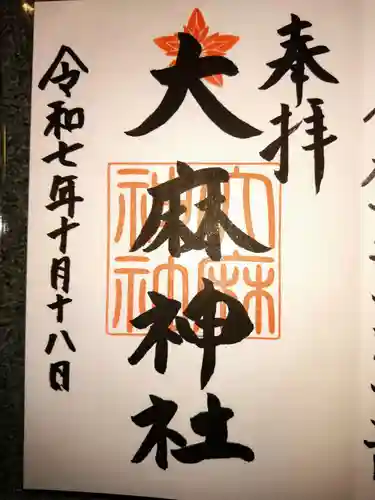 奉拝
大麻神社
令和七年十月十八日
大麻
神社